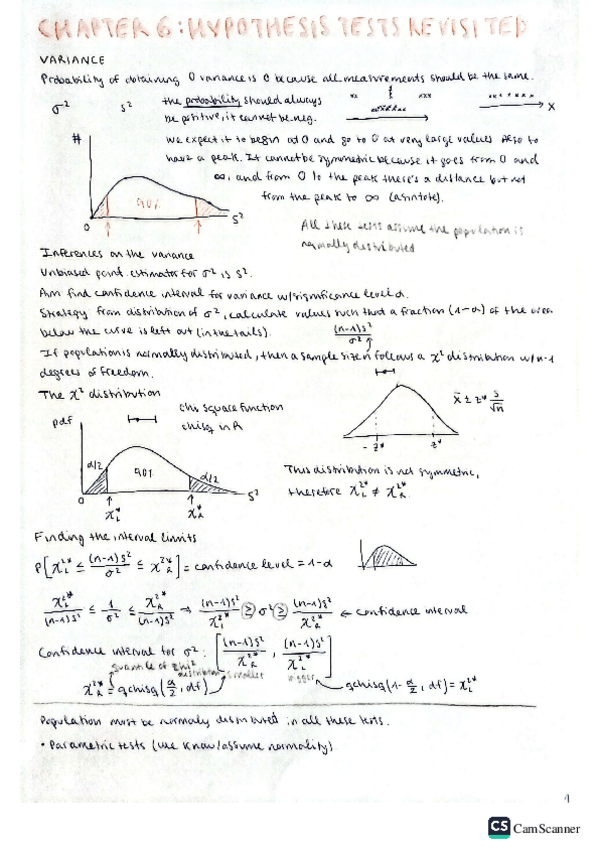 CHAPTER 6: HYPOTHESIS TESTS REVISITED
VARIANCE
Probability of obtaining 0 variance is 0 because all measurements should be the same.
σ² s² the probability should always
be positive, it cannot be neg.
xx xxx
x
We expect it to begin at 0 and go to 0 at very large values Also to
have a peak. It cannot be symmetric because it goes from 0 and
∞, and from 0 to the peak there's a distance but not
from the peak to ∞ (asintote).
#
90%
0 s²
All these tests assume the population is
normally distributed
Inferences on the variance
Unbiased point estimator for σ² is s².
Aim find confidence interval for variance w/significance level α.
Strategy from distribution of σ², calculate values such that a fraction (1-α) of the area
below the curve is left out (in the tails). (n-1)s²/σ²
If population is normally distributed, then a sample size n follows a χ² distribution w/n-1
degrees of freedom.
The χ² distribution
chi square function
chisq in R
pdf
α/2 90% α/2
0 s²
χ²*L χ²*R
x̄ ± z* s/√n
-z* z*
This distribution is not symmetric,
therefore χ²*L ≠ χ²*R.
Finding the interval limits
P[χ²*L ≤ (n-1)s²/σ² ≤ χ²*R] = confidence level = 1-α
χ²*L/(n-1)s² ≤ 1/σ² ≤ χ²*R/(n-1)s² → (n-1)s²/χ²*L ≥ σ² ≥ (n-1)s²/χ²*R ← confidence interval
Confidence interval for σ²: [(n-1)s²/χ²*R , (n-1)s²/χ²*L]
quantile of chi²
distribution smaller bigger
χ²*R = qchisq(α/2, df) qchisq(1-α/2, df) = χ²*L
Population must be normaly distributed in all these tests.
• Parametric tests (we know/assume normality)
1
CS CamScanner